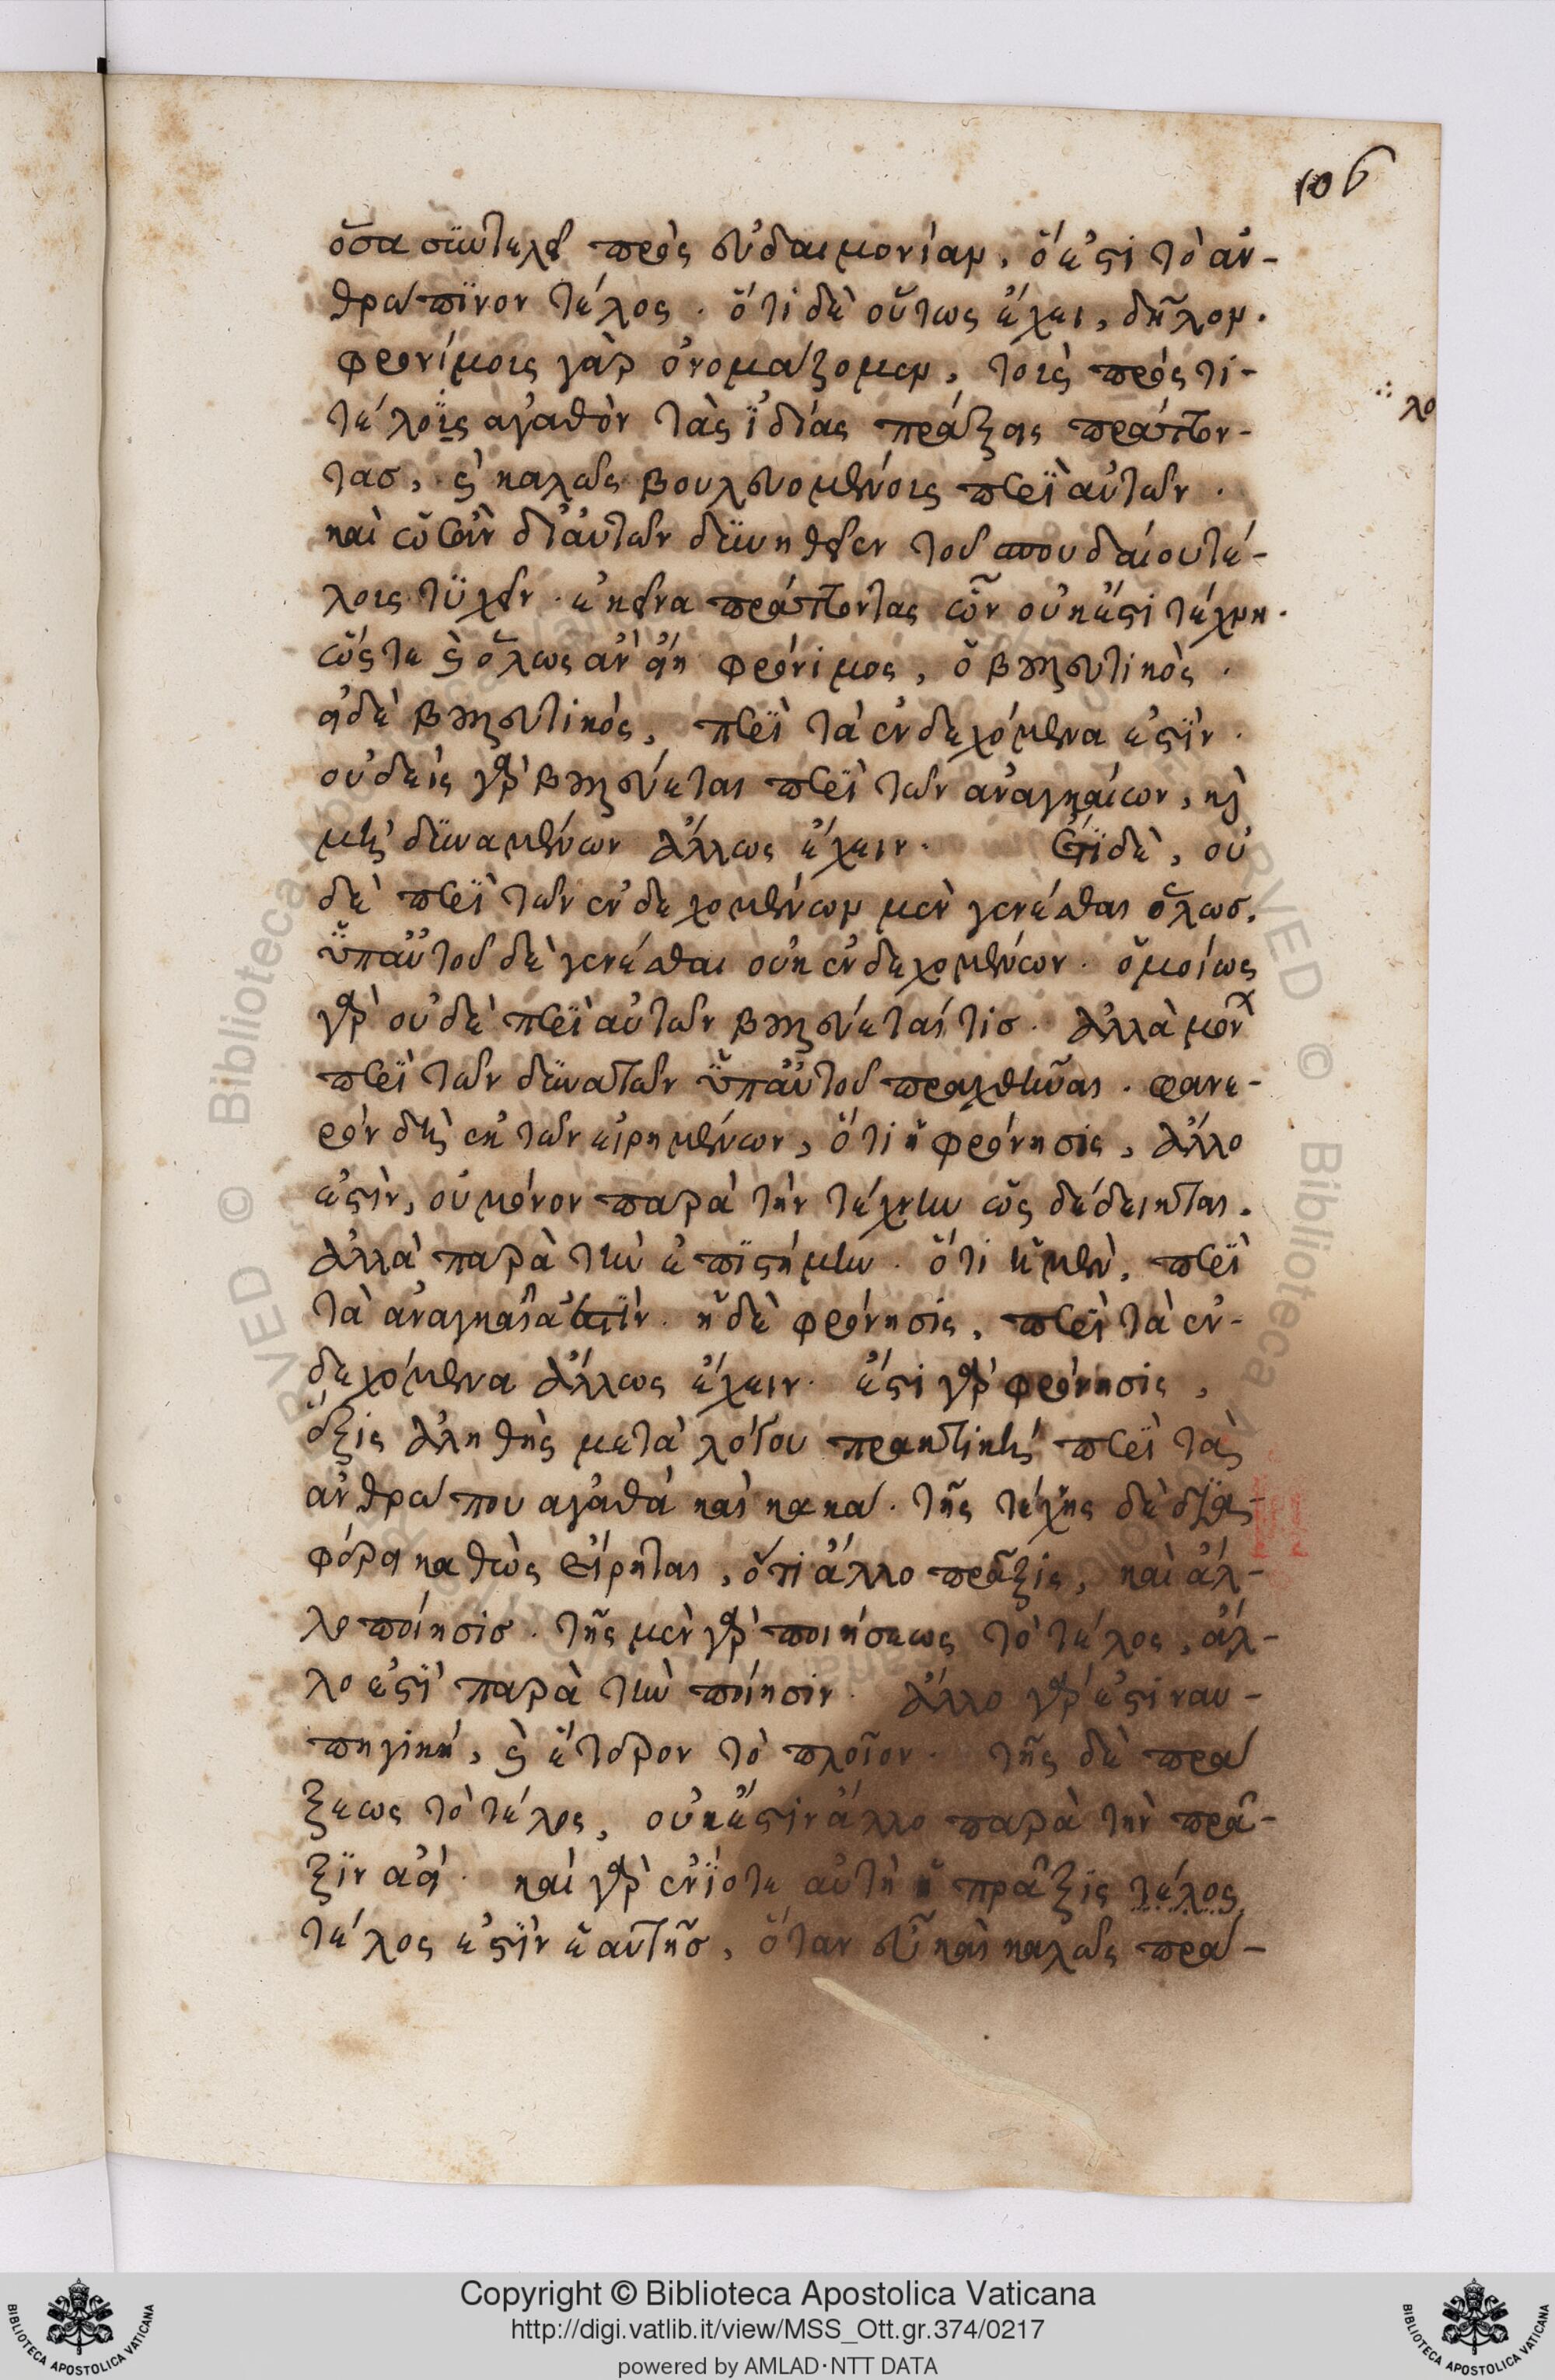 106
ὅσα συντελεῖ πρὸς εὐδαιμονίαν, ὅ ἐστι τὸ ἀν-
θρώπϊνον τέλος · ὅτι δὲ οὕτως ἔχει, δῆλον ·
φρονίμοις γὰρ ὀνομάζομεν, τοῖς πρός τι-
τέλοϊς ἀγαθὸν τὰς ϊδίας πράξεις πράττον-
τασ, καὶ καλῶς βουλευομένοις περὶ αὐτῶν ·
καὶ ὥστε δι᾽ αὐτῶν δϋνηθεῖεν τοῦ σπουδαίου τέ-
λοις τϋχεῖν · ἐκεῖνα πράττοντας ὧν οὐκ ἔστι τέχνη ·
ὥστε καὶ ὅλως ἂν εἴη φρόνιμος, ὁ βουλευτικὸς ·
εἰ δὲ βουλευτικός, περὶ τὰ ἐνδεχόμενα ἐστϊν ·
οὐδεὶς γὰρ βουλεύεται περὶ τῶν ἀναγκαίων, καὶ
μὴ δϋναμένων ἄλλως ἔχειν · ἔτϊ δὲ, οὐ
δὲ περὶ τῶν ἐνδεχομένων μὲν γενέσθαι ὅλωσ,
ϋπ᾽ αὐτοῦ δὲ γενέσθαι οὐκ ἐνδεχομένων · ὁμοίως
γὰρ οὐδὲ περὶ αὐτῶν βουλεύεταί τισ · ἀλλὰ μον
περὶ τῶν δϋνατῶν ϋπ᾽ αὐτοῦ πραχθῆναι · φανε-
ρὸν δὴ ἐκ τῶν εἰρημένων, ὅτι ἡ φρόνησις, ἄλλο
ἐστὶν, οὐ μόνον παρὰ τὴν τέχνην ὡς δέδεικται ·
ἀλλὰ παρὰ τὴν ἐπϊστήμην · ὅτι ἡ μὲν, περὶ
τὰ ἀναγκαῖα ἐστϊν · ἡ δὲ φρόνησις, περὶ τὰ ἐν-
δεχόμενα ἄλλως ἔχειν · ἔστι γὰρ φρόνησις,
ἕξις ἀληθὴς μετὰ λόγου πρακτικὴ περὶ τὰς
ἀνθρώπου ἀγαθὰ καὶ κακά · τῆς τέχνης δὲ δϊα-
φέρει καθὼς εἴρηται, ὅτι ἄλλο πρᾶξις, καὶ ἄλ-
λο ποίησισ · τῆς μὲν γὰρ ποιήσεως τὸ τέλος, ἄλ-
λο ἐστϊ παρὰ τὴν ποίησιν · ἄλλο γὰρ ἐστι ναυ-
πηγικὴ, καὶ ἕτερον τὸ πλοῖον · τῆς δὲ πρά
ξεως τὸ τέλος, οὐκ ἔστιν ἄλλο παρὰ τὴν πρᾶ-
ξϊν ἀεί · καὶ γὰρ ἐνϊοτε αὐτὴ ἡ πρᾶξις τέλος
τέλος ἐστϊν ἑαυτῆσ, ὅταν εὖ καὶ καλῶς πρα-
Copyright © Biblioteca Apostolica Vaticana
http://digi.vatlib.it/view/MSS_Ott.gr.374/0217
powered by AMLAD·NTT DATA